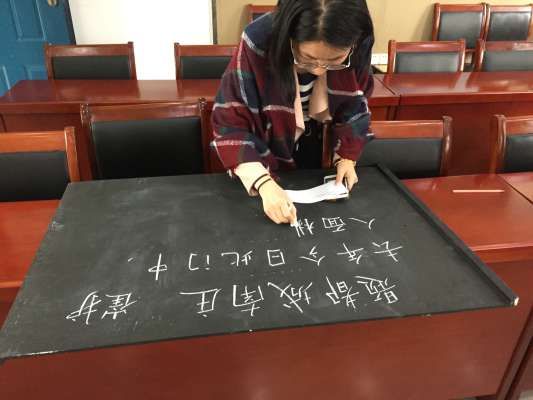 题都城南庄 崔护
去年今日此门中，
人面桃